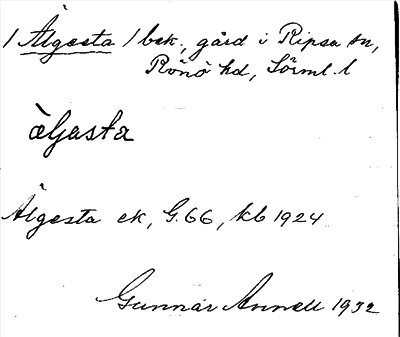 / Älgesta / bek., gård i Ripsa sn,
Rönö hd, Sörml. l
àljasta
Älgesta ek, G.66, kb 1924
Gunnar Annell 1932